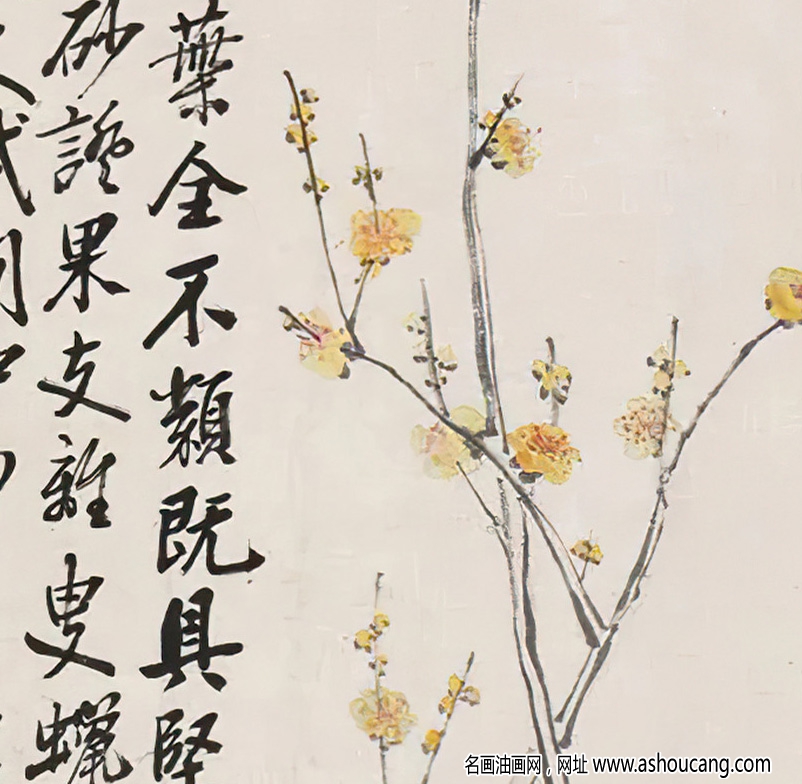 葉全不類既具堅
砂讒果支離叟蠟
名画油画网，网址 www.ashoucang.com